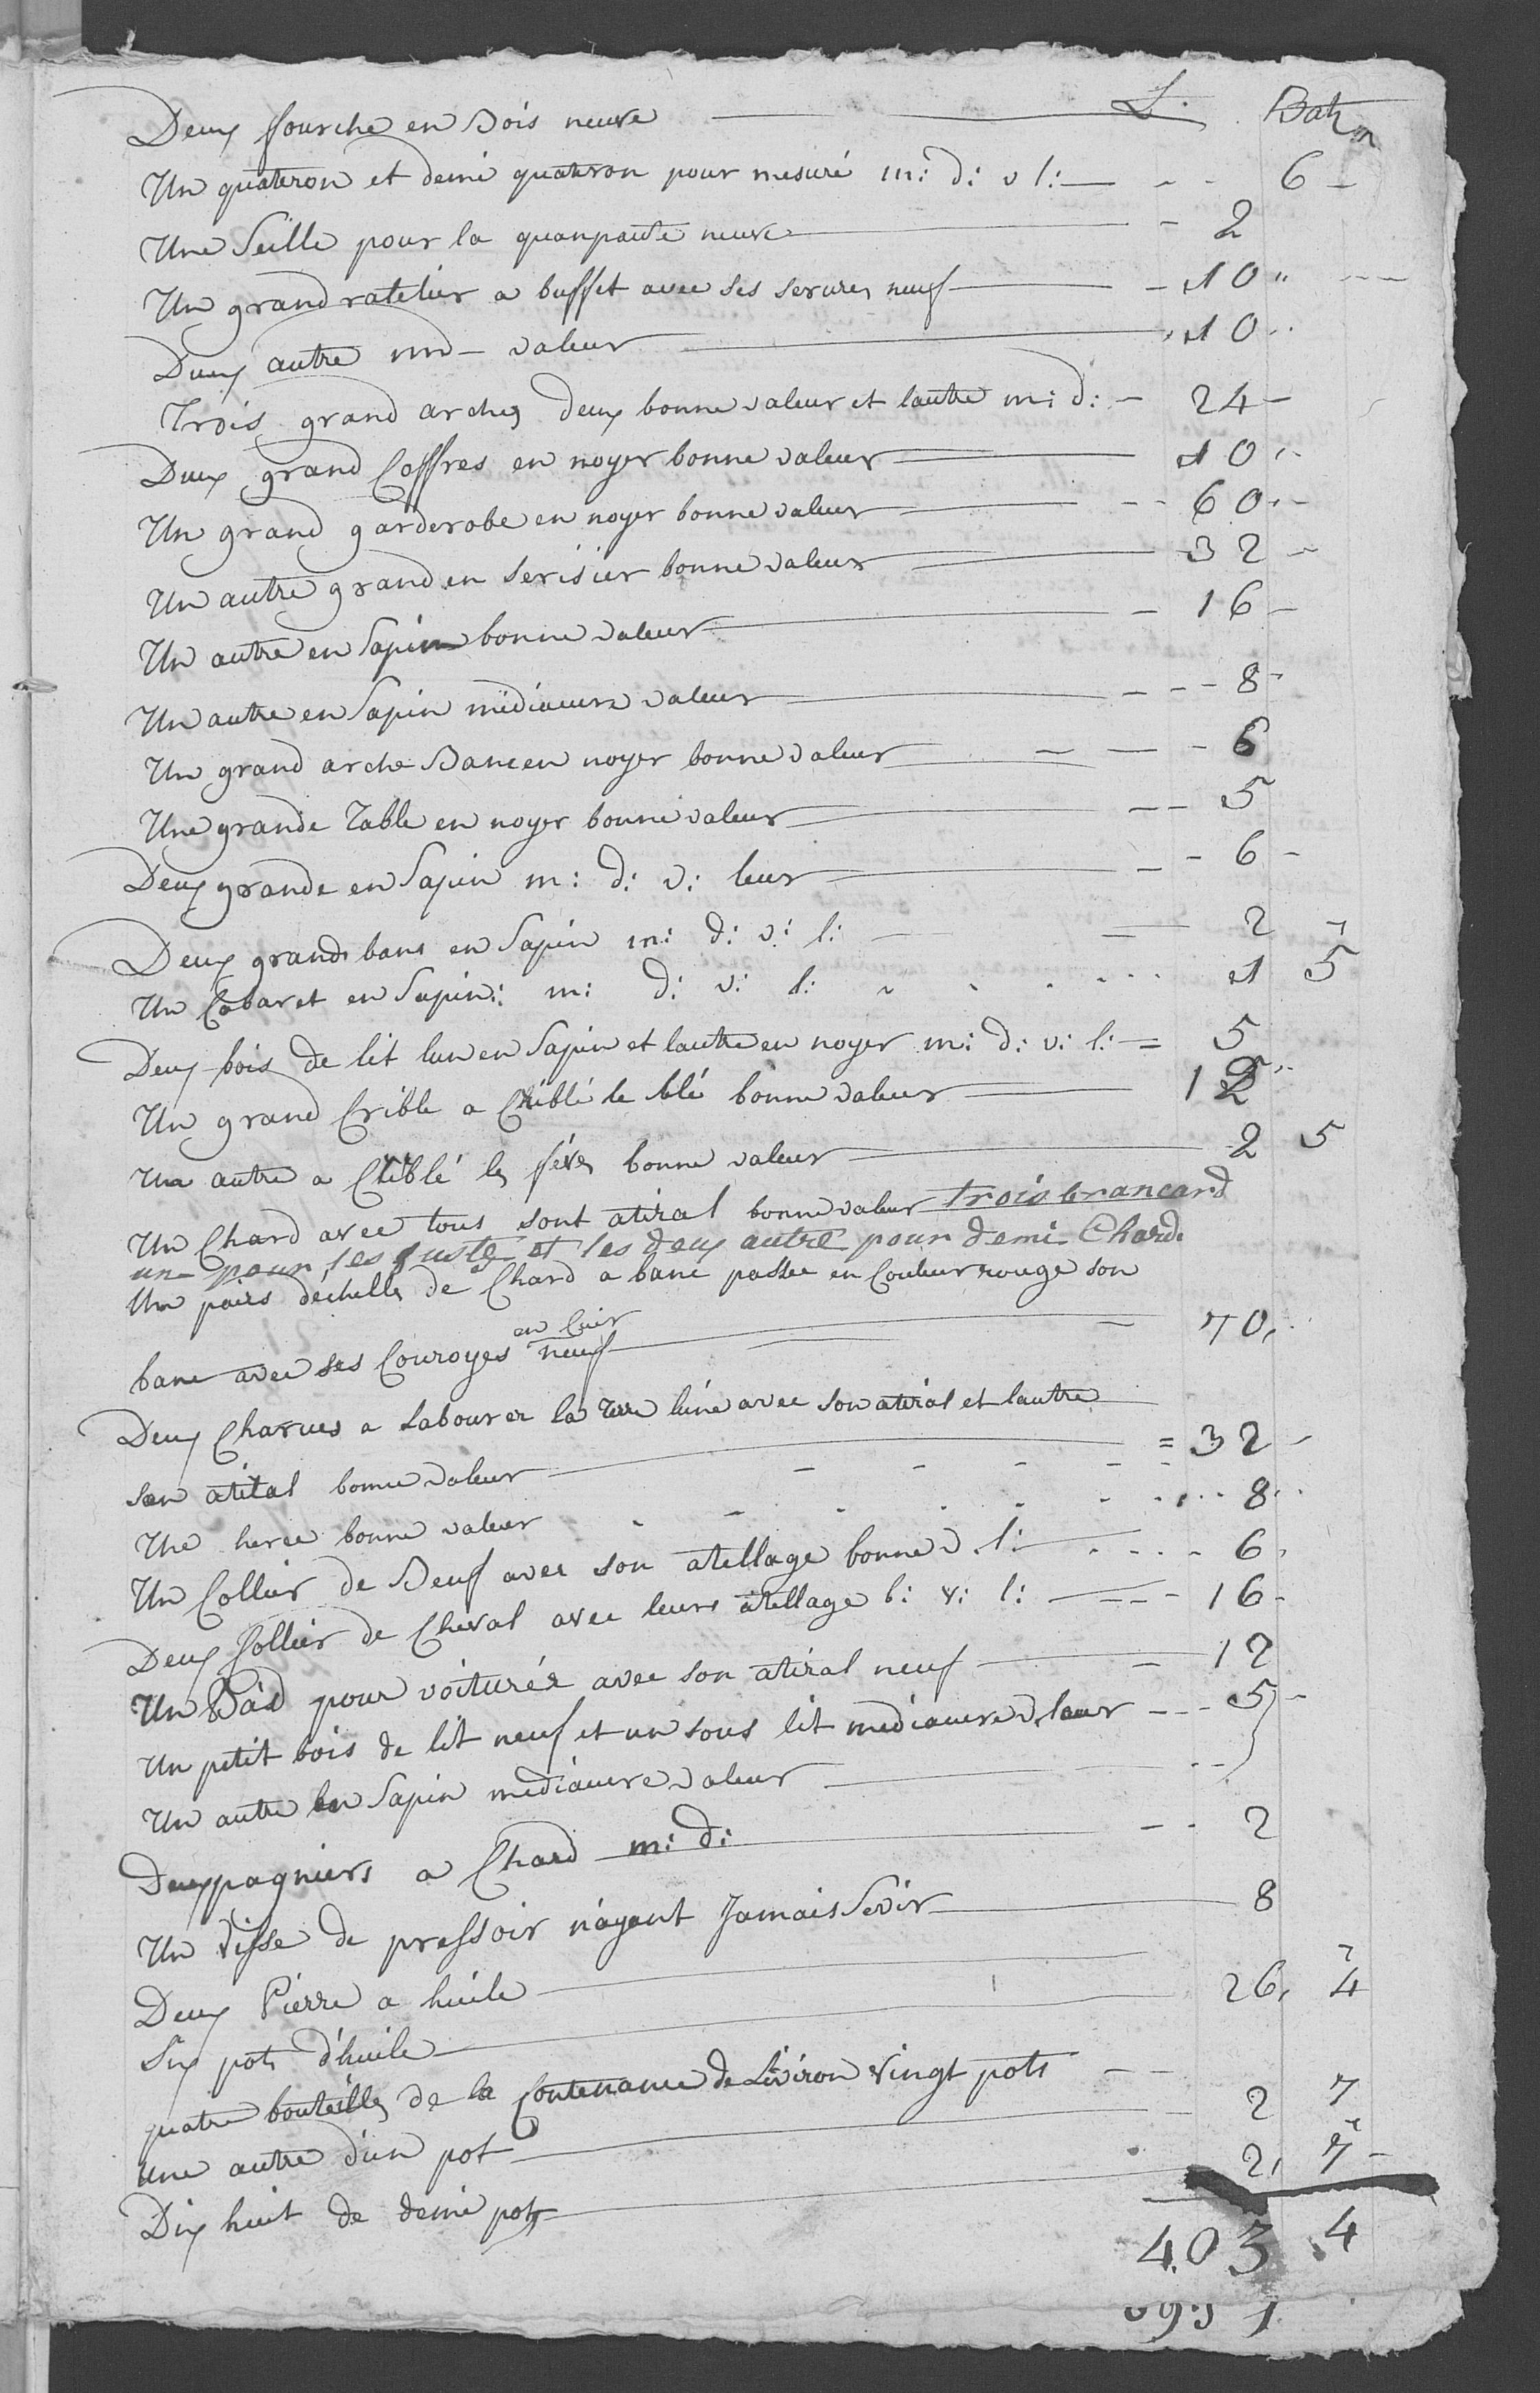 L. Batz
Deux fourche en Bois neuve
Un quateron et demi quateron pour mesuré m: d: v l: 6
Une Seille pour la quanpaute neuve 2
Un grand ratelier a buffet avec ses serures neuf 10
Deux autre md valeur 10
Trois grand arches deux bonne valeur et lautre m: d: 24
Deux grand Coffres en noyer bonne valeur 10
Un grand garderobe en noyer bonne valeur 60
Un autre grand en serisier bonne valeur 32
Un autre en Sapin bonne valeur 16
Un autre en Sapin mediauere valeur 8
Un grand arche Banc en noyer bonne valeur 6
Une grande Table en noyer bonne valeur 5
Deux grande en Sapin m: d: v: leur 6
Deux grands bans en Sapin m: d: v: l: 2
Un Cabaret en Sapin: m: d: v: l: 1 5
Deux bois de lit lun en Sapin et lautre en noyer m: d: v: l: 5
Un grand Crible a Criblé le blé bonne valeur 12
Un autre a Criblé les féves bonne valeur 2 5
Un Chard avec tous sont atiral bonne valeur trois brancard
une pour les fuste et les deux autre pour demi Chard
Un pairs dechelles de Chard a banc passée en Couleur rouge son
banc avec ses Couroyes en Cuir neuf 70
Deux Charues a Labourer la terre lune avec son atiral et lautre
son atiral bonne valeur 32
Une herce bonne valeur 8
Un Collier de Beuf avec son atellage bonne v. l: 6
Deux Collier de Cheval avec leurs atellage b: v: l: 16
Un Bad pour voiturér avec son atiral neuf 12
Un petit bois de lit neuf et un sous lit mediauere valeur 5
Un autre en Sapin mediauere valeur
Deux pagniers a Chard m: d: 2
Un Visse de pressoir n'ayant Jamais Servir 8
Deux Pierre a huile 26 4
Six pots d'huile
quatre bouteilles de la Contenance de Lenviron vingt pots 2 7
Une autre d'un pot 2 7
Dix huit de demi pots
403 4
393 1